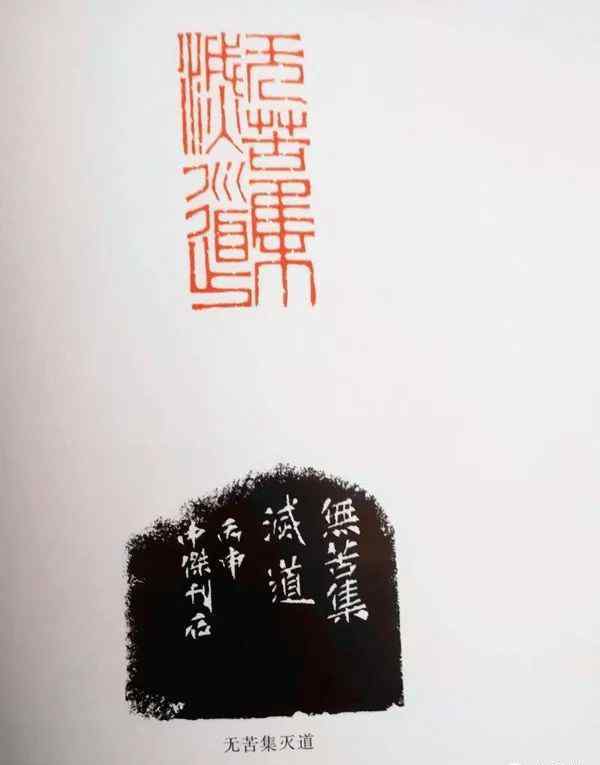 无苦集
滅道
無苦集
滅道
丙申
傑刊
无苦集灭道